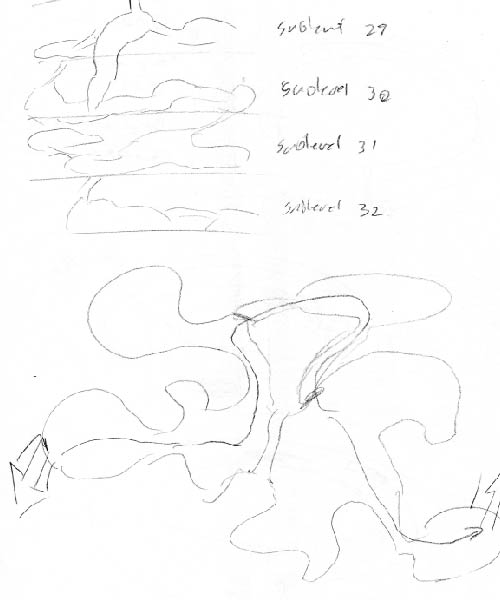 Sublevel 29
Sublevel 30
Sublevel 31
Sublevel 32